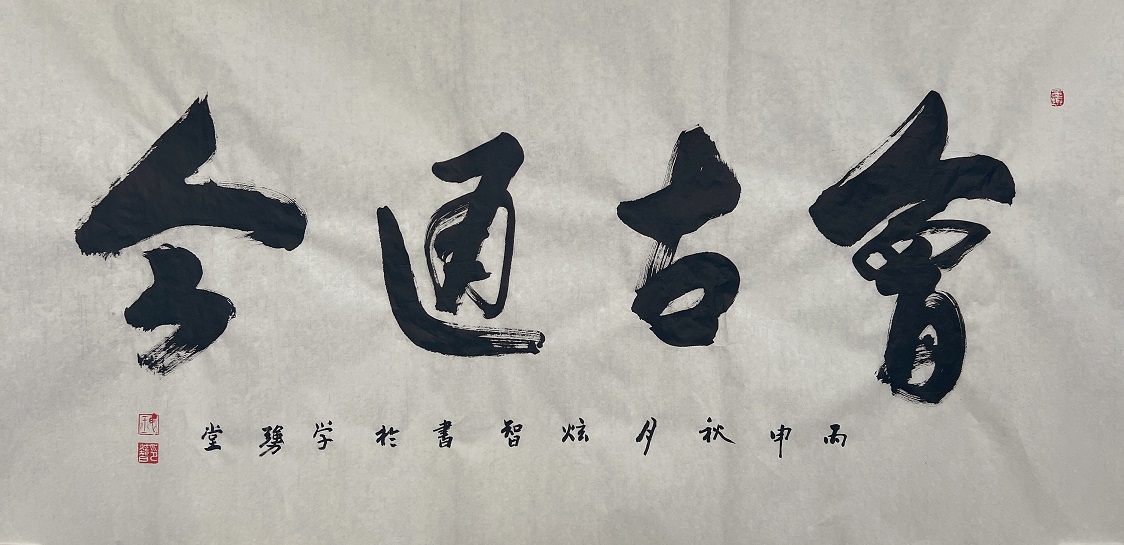 會古通今
丙申秋月炫智書於学勇堂